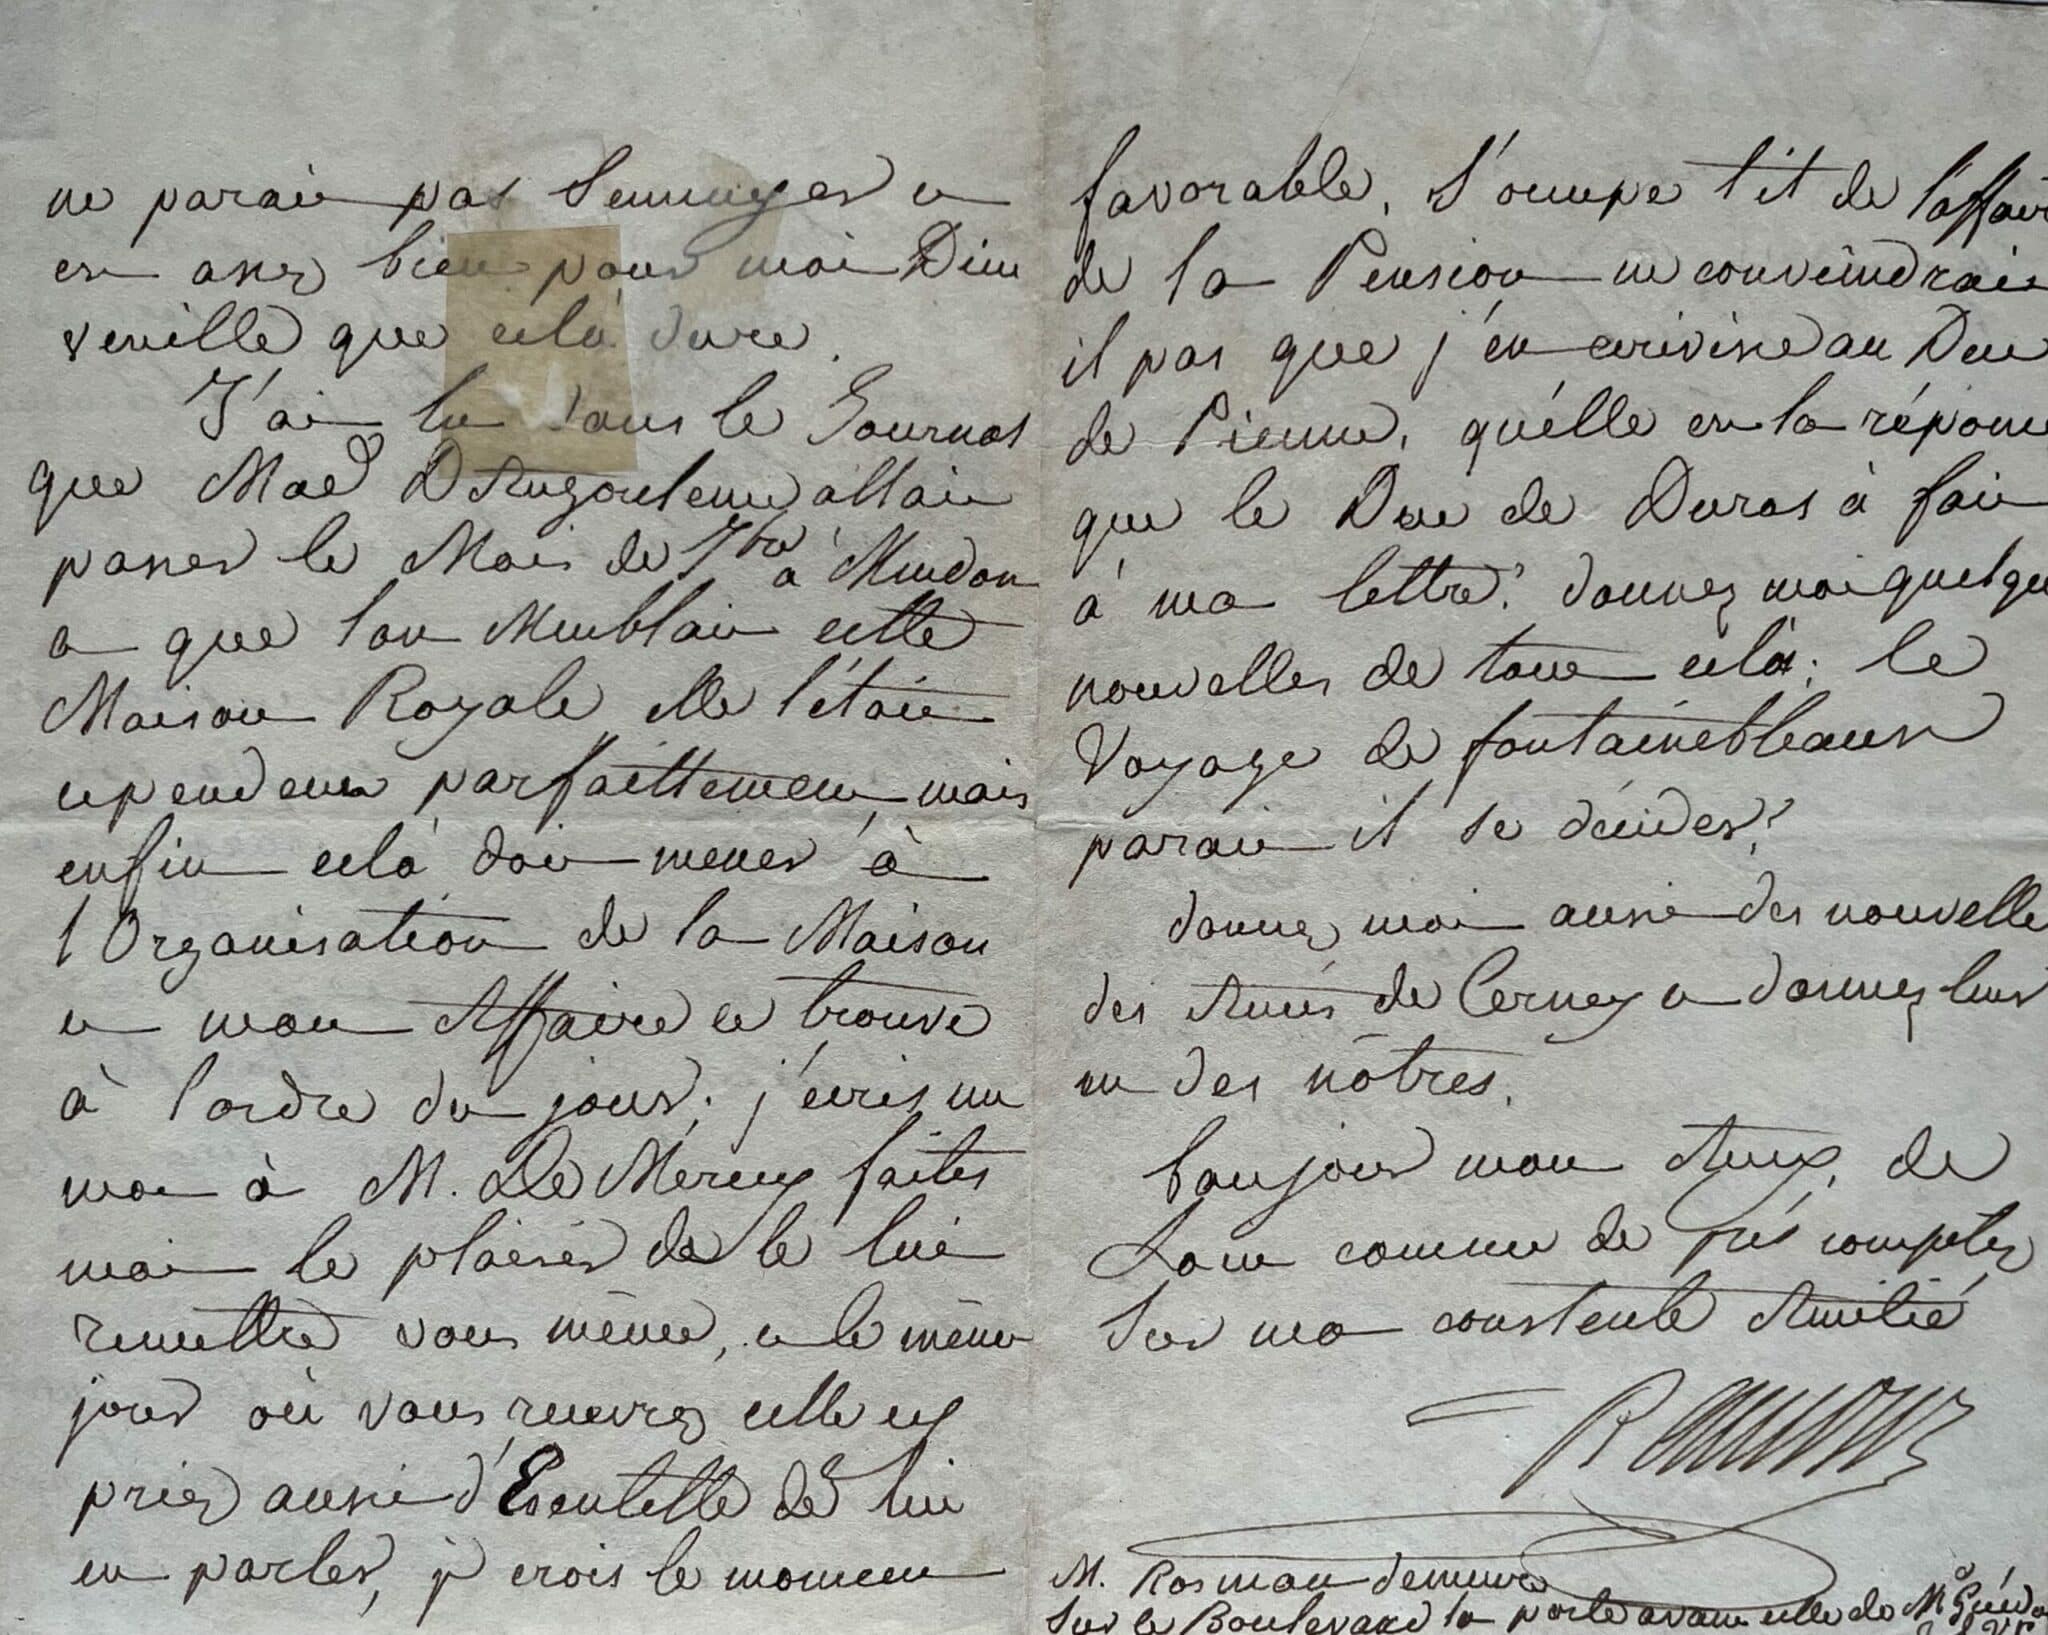 ne parait pas s'ennuyer et
est assez bien pour moi Dieu
veuille que celà dure.
J'ai lu dans le Journal
que Made D'Angouleme allait
passer le Mois de 7bre à Meudon
et que l'on Meublait cette
Maison Royale elle l'était
cependent parfaittement, mais
enfin celà doit mener à
l'Organisation de la Maison
et mon Affaire se trouve
à l'ordre du jour; j'écris un
mot à M. De Mercey faites
moi le plaisir de le lui
remettre vous même, et le même
jour où vous recevrez celle cy
priez aussi d'Escutelle de lui
en parler, je crois le moment
favorable. S'occupe t'it de l'affair
de la Pension ne conviendrait
il pas que j'en écrivisse au Duc
de Pienne, qu'elle est la réponse
que le Duc de Duras à fait
à ma lettre? donnez moi quelque
nouvelles de tout celà; le
Voyage de fontainebleau
parait il se décider?
donnez moi aussi des nouvelle
des Amis de Cernay et donnez leur
en des nôtres.
bonjour mon Amy, de
Loin comme de près comptez
sur ma constente Amitié
M. Rosman demeure
sur le Boulevard la porte avant celle de Mr